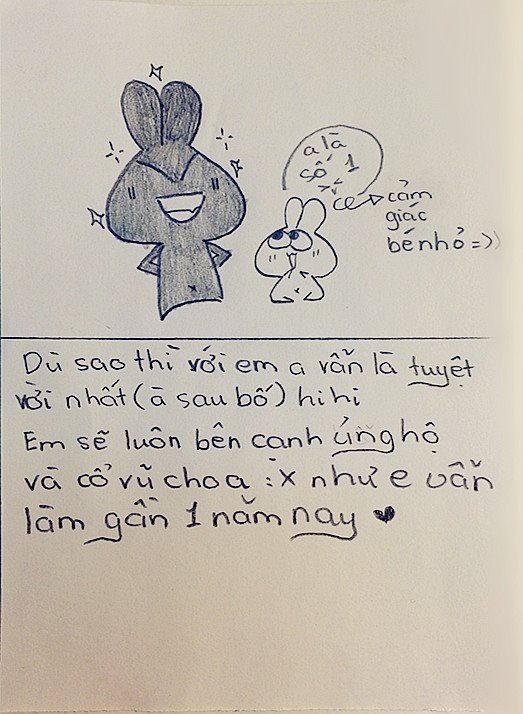 a là
số 1
cảm
giác
bé nhỏ =))
Dù sao thì với em a vẫn là tuyệt
vời nhất (à sau bố) hihi
Em sẽ luôn bên cạnh ủng hộ
và cổ vũ cho a :x như e vẫn
làm gần 1 năm nay ♥